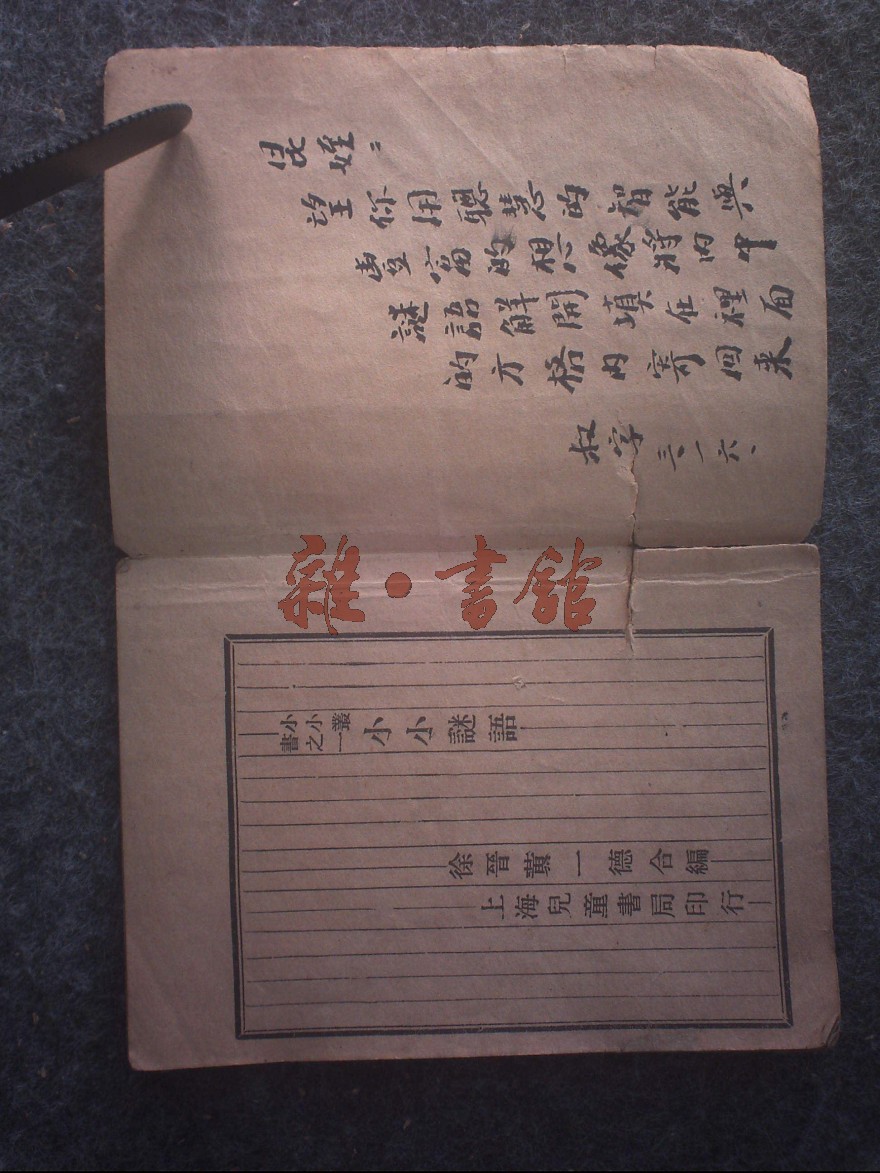 昆姪：
望你用聰慧的智能與
豐富的想像將內中
謎語解開填在裡面
的方格內寄回來
叔字 三、一六、
雜·書館
小小叢
書之一
小小謎語
徐晉黃一德合編
上海兒童書局印行